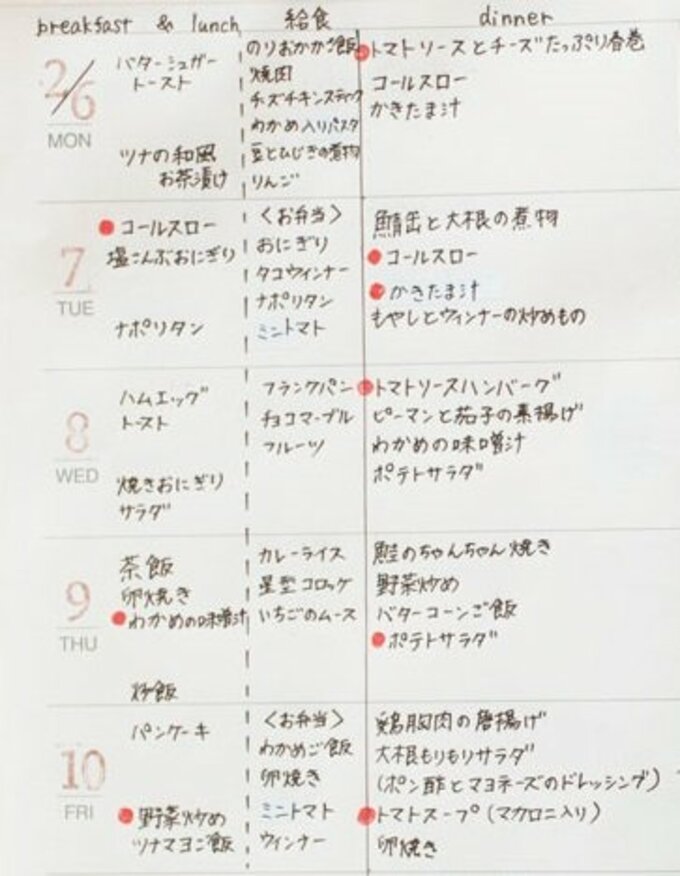 breakfast & lunch 給食 dinner
2/6
MON
バターシュガー
トースト
ツナの和風
お茶漬け
のりおかかご飯
焼肉
チーズチキンスティック
わかめ入りパスタ
豆とひじきの煮物
りんご
トマトソースとチーズたっぷり春巻
コールスロー
かきたま汁
7
TUE
コールスロー
塩こんぶおにぎり
ナポリタン
〈お弁当〉
おにぎり
タコウィンナー
ナポリタン
ミニトマト
鯖缶と大根の煮物
コールスロー
かきたま汁
もやしとウィンナーの炒めもの
8
WED
ハムエッグ
トースト
焼きおにぎり
サラダ
フランクパン
チョコマーブル
フルーツ
トマトソースハンバーグ
ピーマンと茄子の素揚げ
わかめの味噌汁
ポテトサラダ
9
THU
茶飯
卵焼き
わかめの味噌汁
炒飯
カレーライス
星型コロッケ
いちごのムース
鮭のちゃんちゃん焼き
野菜炒め
バターコーンご飯
ポテトサラダ
10
FRI
パンケーキ
野菜炒め
ツナマヨご飯
〈お弁当〉
わかめご飯
卵焼き
ミニトマト
ウィンナー
鶏胸肉の唐揚げ
大根もりもりサラダ
(ポン酢とマヨネーズのドレッシング)
トマトスープ(マカロニ入り)
卵焼き